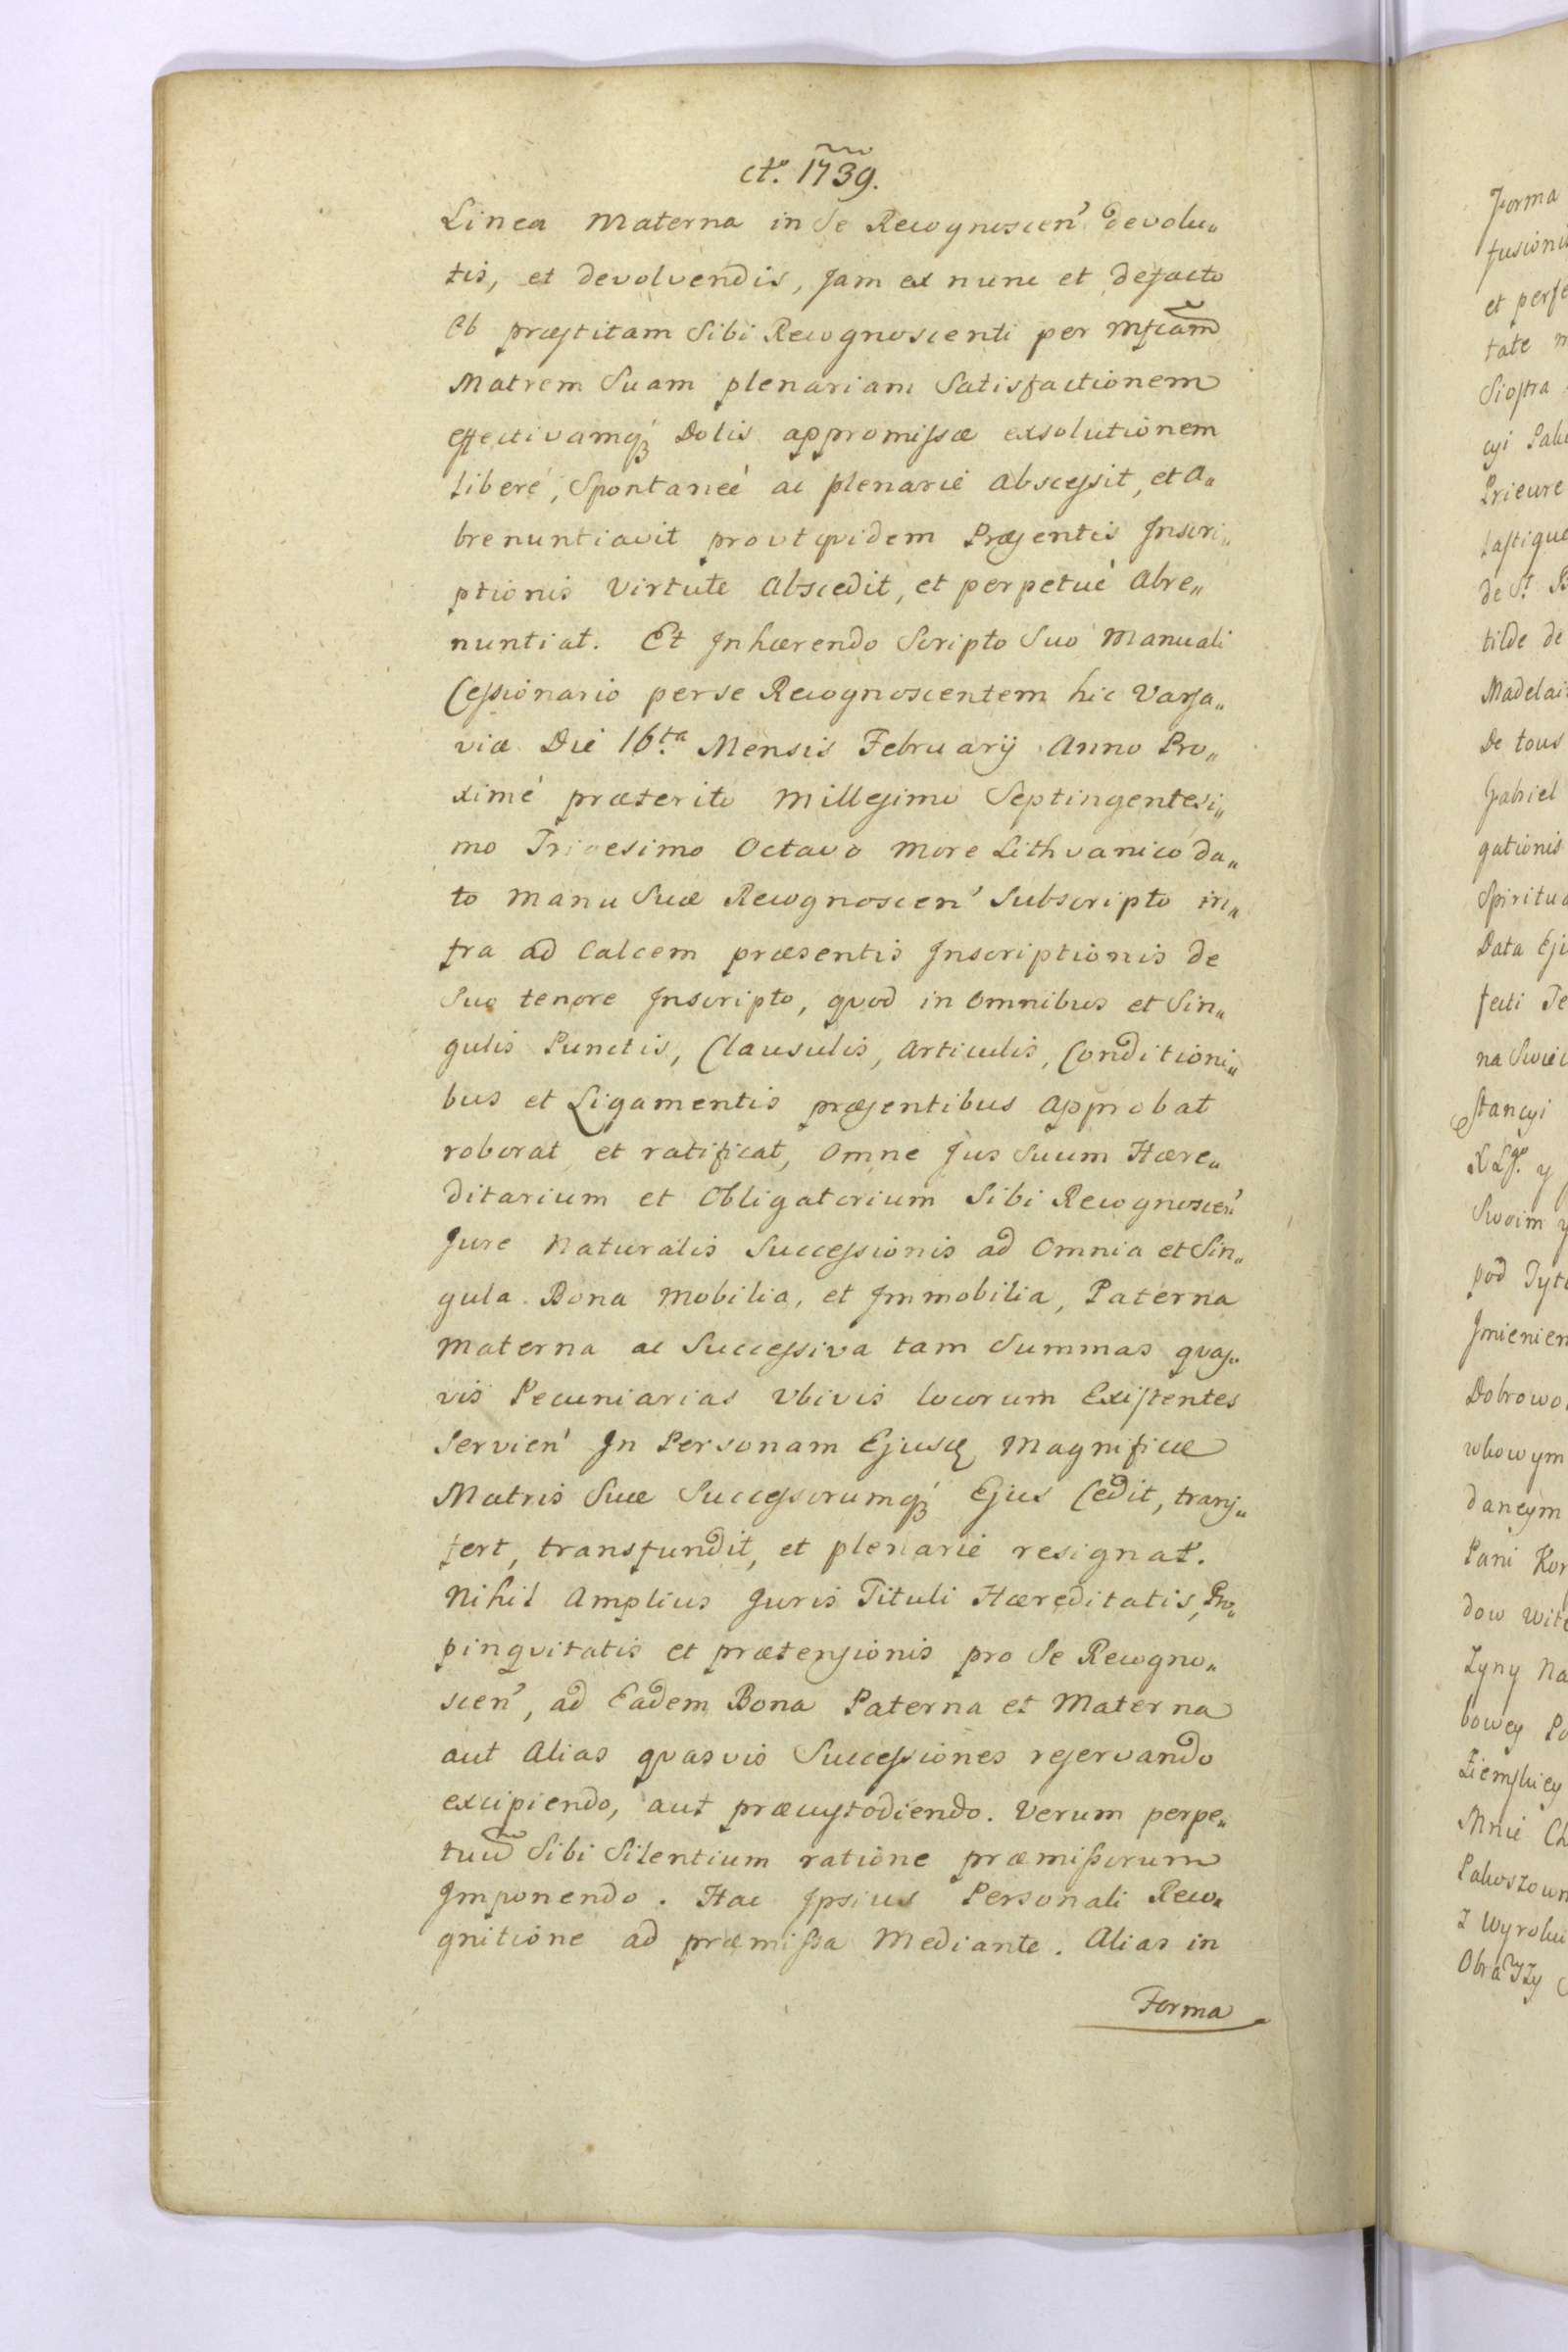 ct. 1739.
Linea Materna in Se Recognoscen' devolu„
tis, et devolvendis, Jam ex nunc et defacto
Ob præstitam Sibi Recognoscenti per Mfcam̃
Matrem Suam plenariam Satisfactionem
effectivamq́; Dotis appromissæ exsolutionem
liberé, Spontaneé ac plenarié abscessit, et a„
brenuntiavit prout qvidem Præsentis Inscri„
ptionis Virtute Abscedit, et perpetué Abre„
nuntiat. Et Inhærendo Scripto Suo Manuali
Cessionario per se Recognoscentem hic Varsa„
viæ Dié 16.ta Mensis Februarij Anno Pro„
ximé præterito Millesimo Septingentesi„
mo Trigesimo Octavo More Lithvanico da„
to Manu Suæ Recognoscen' Subscripto in„
fra ad Calcem præsentis Inscriptionis de
Suo tenore Inscripto, qvod in Omnibus et Sin„
gulis Punctis, Clausulis, Articulis, Conditioni„
bus et Ligamentis præsentibus Approbat
roborat et ratificat, Omne Jus Suum Hære„
ditarium et Obligatorium Sibi Recognoscen'
Jure Naturalis Successionis ad Omnia et Sin„
gula Bona Mobilia, et Immobilia, Paterna
Materna ac Successiva tam Summas qvas„
vis Pecuniarias Vbivis locorum Existentes
Servien' In Personam Ejusq Magnificæ
Matris Suæ Successorumq́; Ejus Cedit, trans„
fert, transfundit, et plenarié resignat.
Nihil Amplius Juris Tituli Hæreditatis, Pro„
pinqvitatis et prætensionis pro Se Recogno„
scen', ad Eadem Bona Paterna et Materna
aut Alias qvasvis Successiones reservando
excipiendo, aut præcustodiendo. Verum perpe„
tuũ Sibi Silentium ratione præmissorum
Imponendo. Hac Ipsius Personali Reco„
gnitione ad præmissa Mediante. Alias in
Forma
Forma
et perfe
tate
Siostra
Prieure
de St.
tilde de
De tous
Gabriel
gationis
Data Eji
stancyi
Swoim
Dobrowo
Pani Kor
Mnie Ch